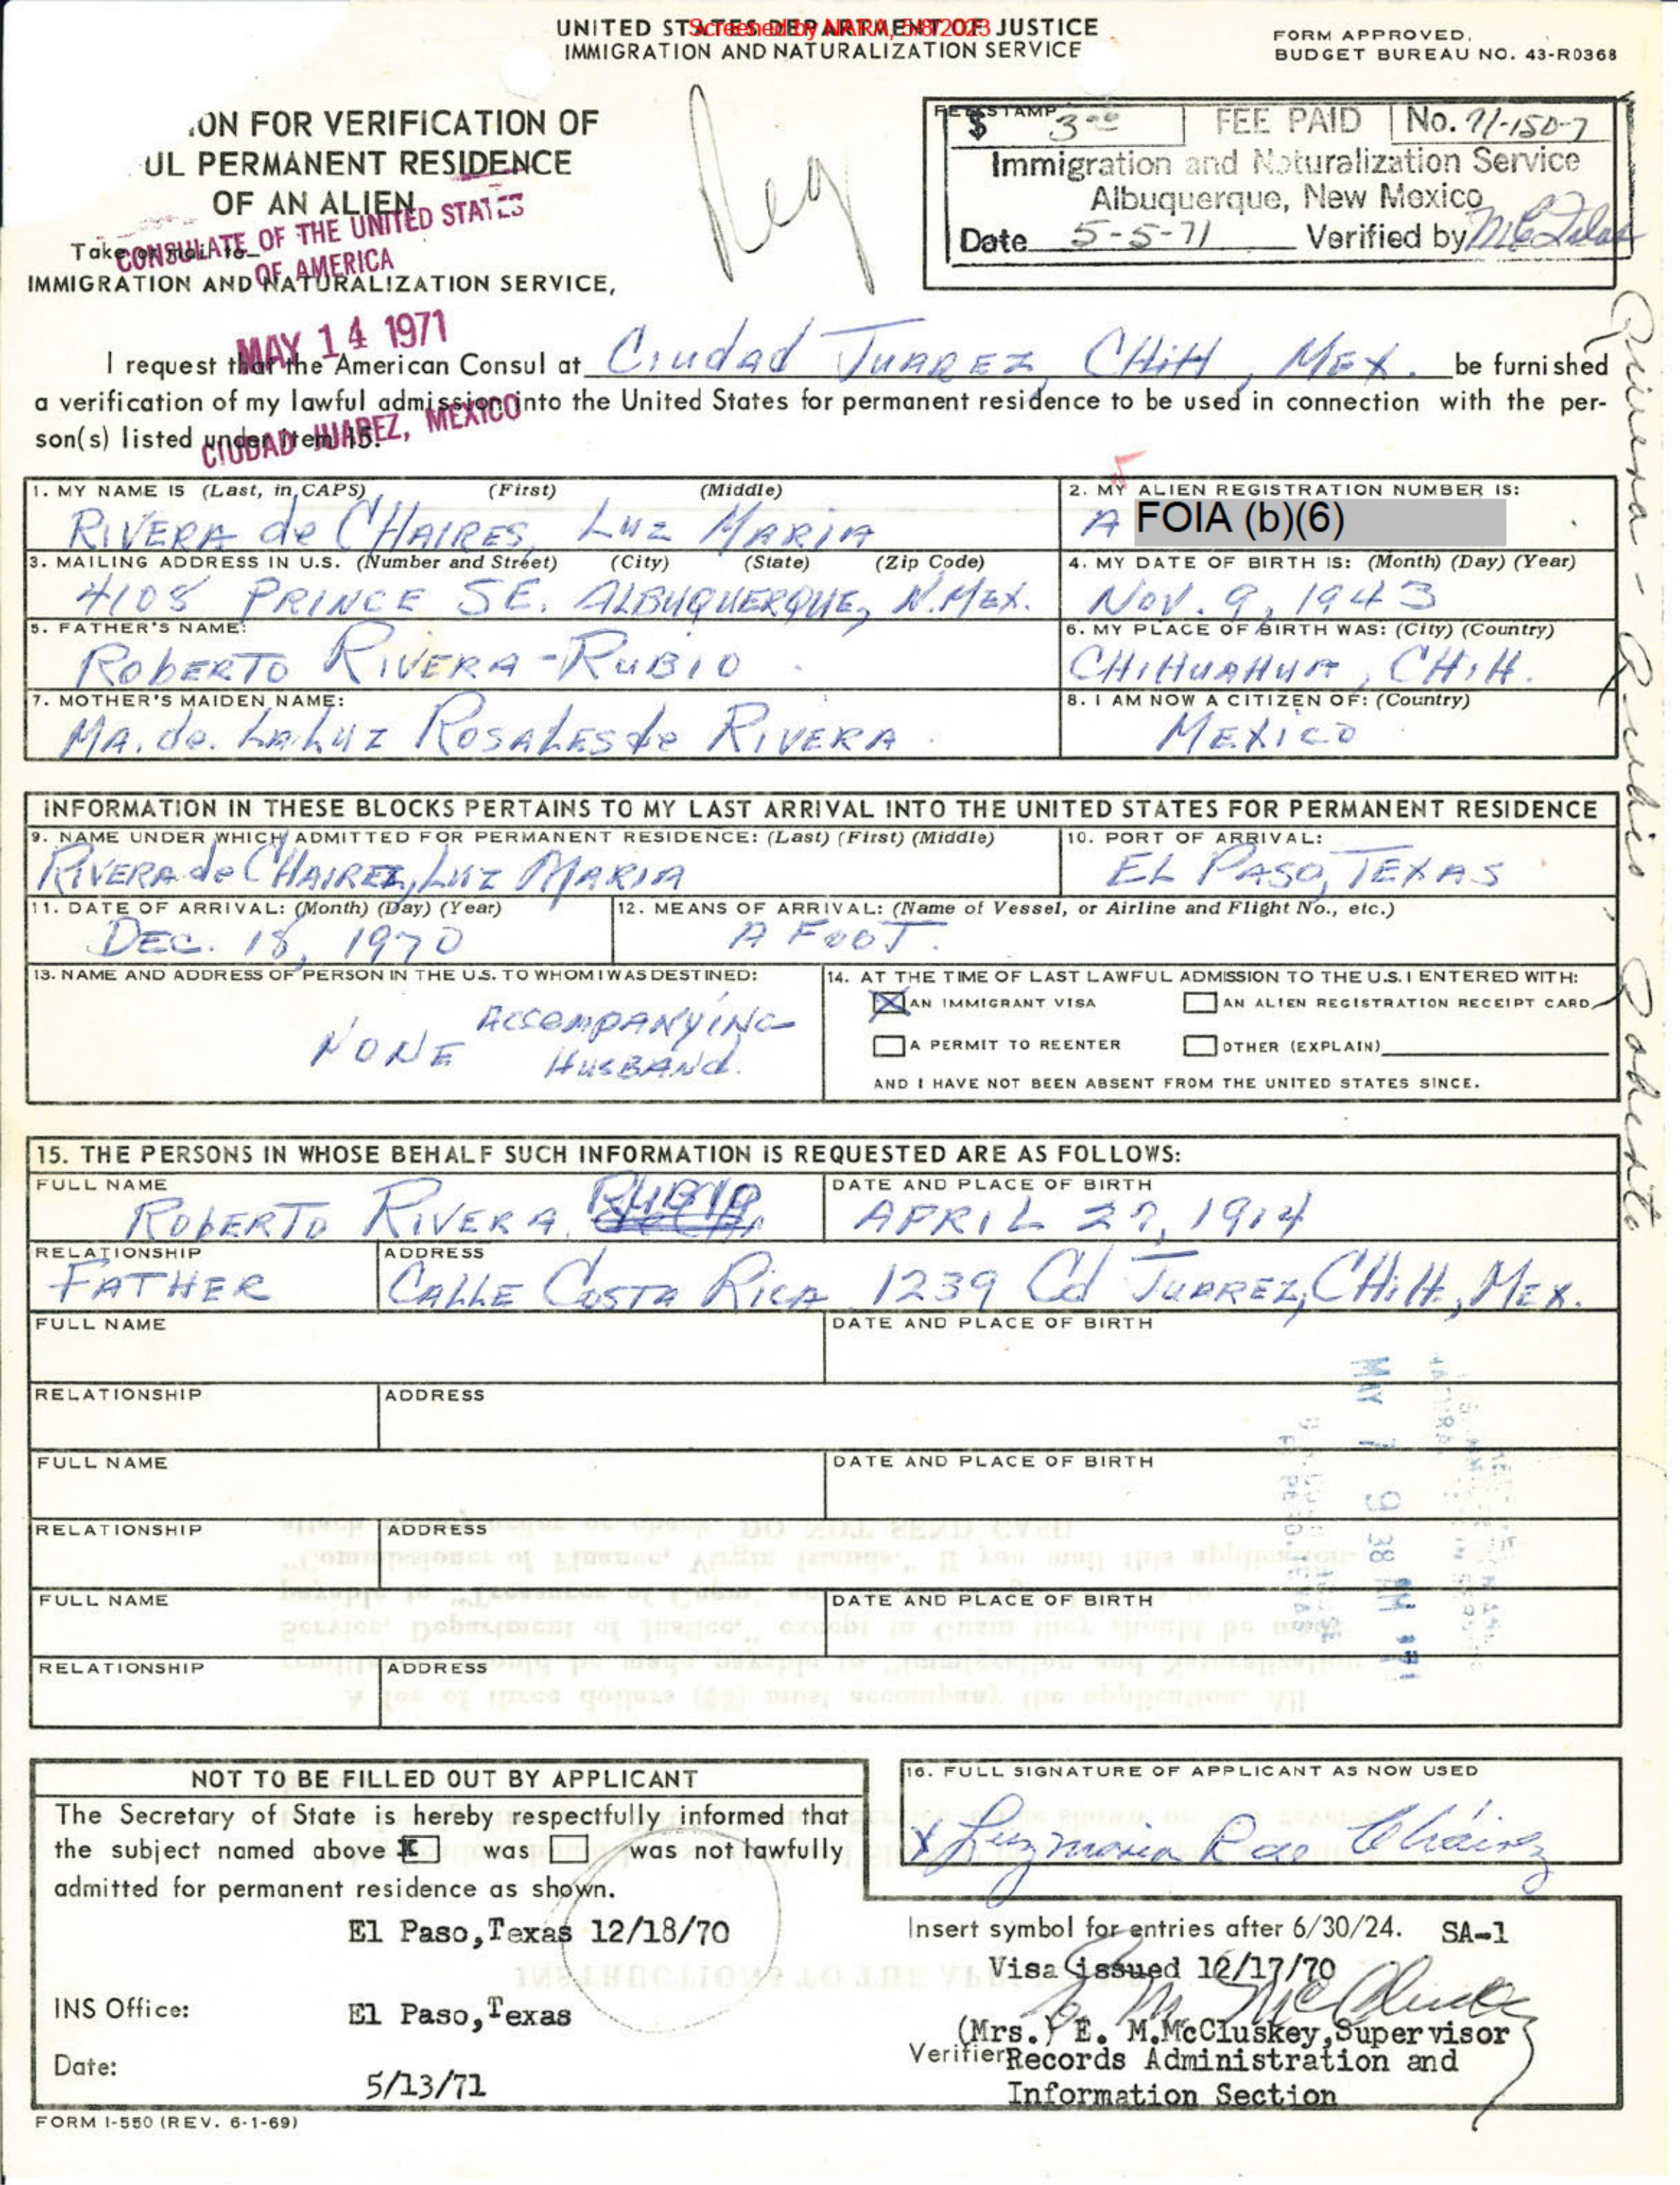 UNITED STATES DEPARTMENT OF JUSTICE
Screened by NARA, 5/8/2023
IMMIGRATION AND NATURALIZATION SERVICE
FORM APPROVED.
BUDGET BUREAU NO. 43-R0368
ION FOR VERIFICATION OF
UL PERMANENT RESIDENCE
OF AN ALIEN
Reg
FEE STAMP
$ 3.00 FEE PAID No. 71-150-7
Immigration and Naturalization Service
Albuquerque, New Mexico
Date 5-5-71 Verified by
CONSULATE OF THE UNITED STATES
OF AMERICA
MAY 14 1971
CIUDAD JUAREZ, MEXICO
Take or mail to
IMMIGRATION AND NATURALIZATION SERVICE,
I request that the American Consul at Ciudad JUAREZ, CHIH, MEX. be furnished
a verification of my lawful admission into the United States for permanent residence to be used in connection with the per-
son(s) listed under item 15.
1. MY NAME IS (Last, in CAPS) (First) (Middle)
RIVERA de CHAIRES, LUZ MARIA
2. MY ALIEN REGISTRATION NUMBER IS:
A FOIA (b)(6)
3. MAILING ADDRESS IN U.S. (Number and Street) (City) (State) (Zip Code)
4108 PRINCE SE. ALBUQUERQUE, N.MEX.
4. MY DATE OF BIRTH IS: (Month) (Day) (Year)
NOV. 9, 1943
5. FATHER'S NAME:
ROBERTO RIVERA-RUBIO
6. MY PLACE OF BIRTH WAS: (City) (Country)
CHIHUAHUA, CHIH.
7. MOTHER'S MAIDEN NAME:
MA. de. LA LUZ ROSALES de RIVERA
8. I AM NOW A CITIZEN OF: (Country)
MEXICO
Rivera - Rubio Roberto
INFORMATION IN THESE BLOCKS PERTAINS TO MY LAST ARRIVAL INTO THE UNITED STATES FOR PERMANENT RESIDENCE
9. NAME UNDER WHICH ADMITTED FOR PERMANENT RESIDENCE: (Last) (First) (Middle)
RIVERA de CHAIREZ, LUZ MARIA
10. PORT OF ARRIVAL:
EL PASO, TEXAS
11. DATE OF ARRIVAL: (Month) (Day) (Year)
DEC. 18, 1970
12. MEANS OF ARRIVAL: (Name of Vessel, or Airline and Flight No., etc.)
A FOOT.
13. NAME AND ADDRESS OF PERSON IN THE U.S. TO WHOM I WAS DESTINED:
NONE ACCOMPANYING
HUSBAND.
14. AT THE TIME OF LAST LAWFUL ADMISSION TO THE U.S. I ENTERED WITH:
AN IMMIGRANT VISA
AN ALIEN REGISTRATION RECEIPT CARD
A PERMIT TO REENTER
OTHER (EXPLAIN)
AND I HAVE NOT BEEN ABSENT FROM THE UNITED STATES SINCE.
15. THE PERSONS IN WHOSE BEHALF SUCH INFORMATION IS REQUESTED ARE AS FOLLOWS:
FULL NAME
ROBERTO RIVERA, RUBIO
DATE AND PLACE OF BIRTH
APRIL 27, 1914
RELATIONSHIP
FATHER
ADDRESS
CALLE COSTA RICA 1239 Cd JUAREZ, CHIH., MEX.
FULL NAME
DATE AND PLACE OF BIRTH
RELATIONSHIP
ADDRESS
FULL NAME
DATE AND PLACE OF BIRTH
RELATIONSHIP
ADDRESS
FULL NAME
DATE AND PLACE OF BIRTH
RELATIONSHIP
ADDRESS
MAY 7 9 38 AM
NOT TO BE FILLED OUT BY APPLICANT
The Secretary of State is hereby respectfully informed that
the subject named above X was was not lawfully
admitted for permanent residence as shown.
El Paso, Texas 12/18/70
INS Office: El Paso, Texas
Date: 5/13/71
16. FULL SIGNATURE OF APPLICANT AS NOW USED
X Luzmaria R de Cháirez
Insert symbol for entries after 6/30/24. SA-1
Visa issued 12/17/70
E M McCluskey
(Mrs.) E. M. McCluskey, Supervisor
Verifier Records Administration and
Information Section
FORM I-550 (REV. 6-1-69)